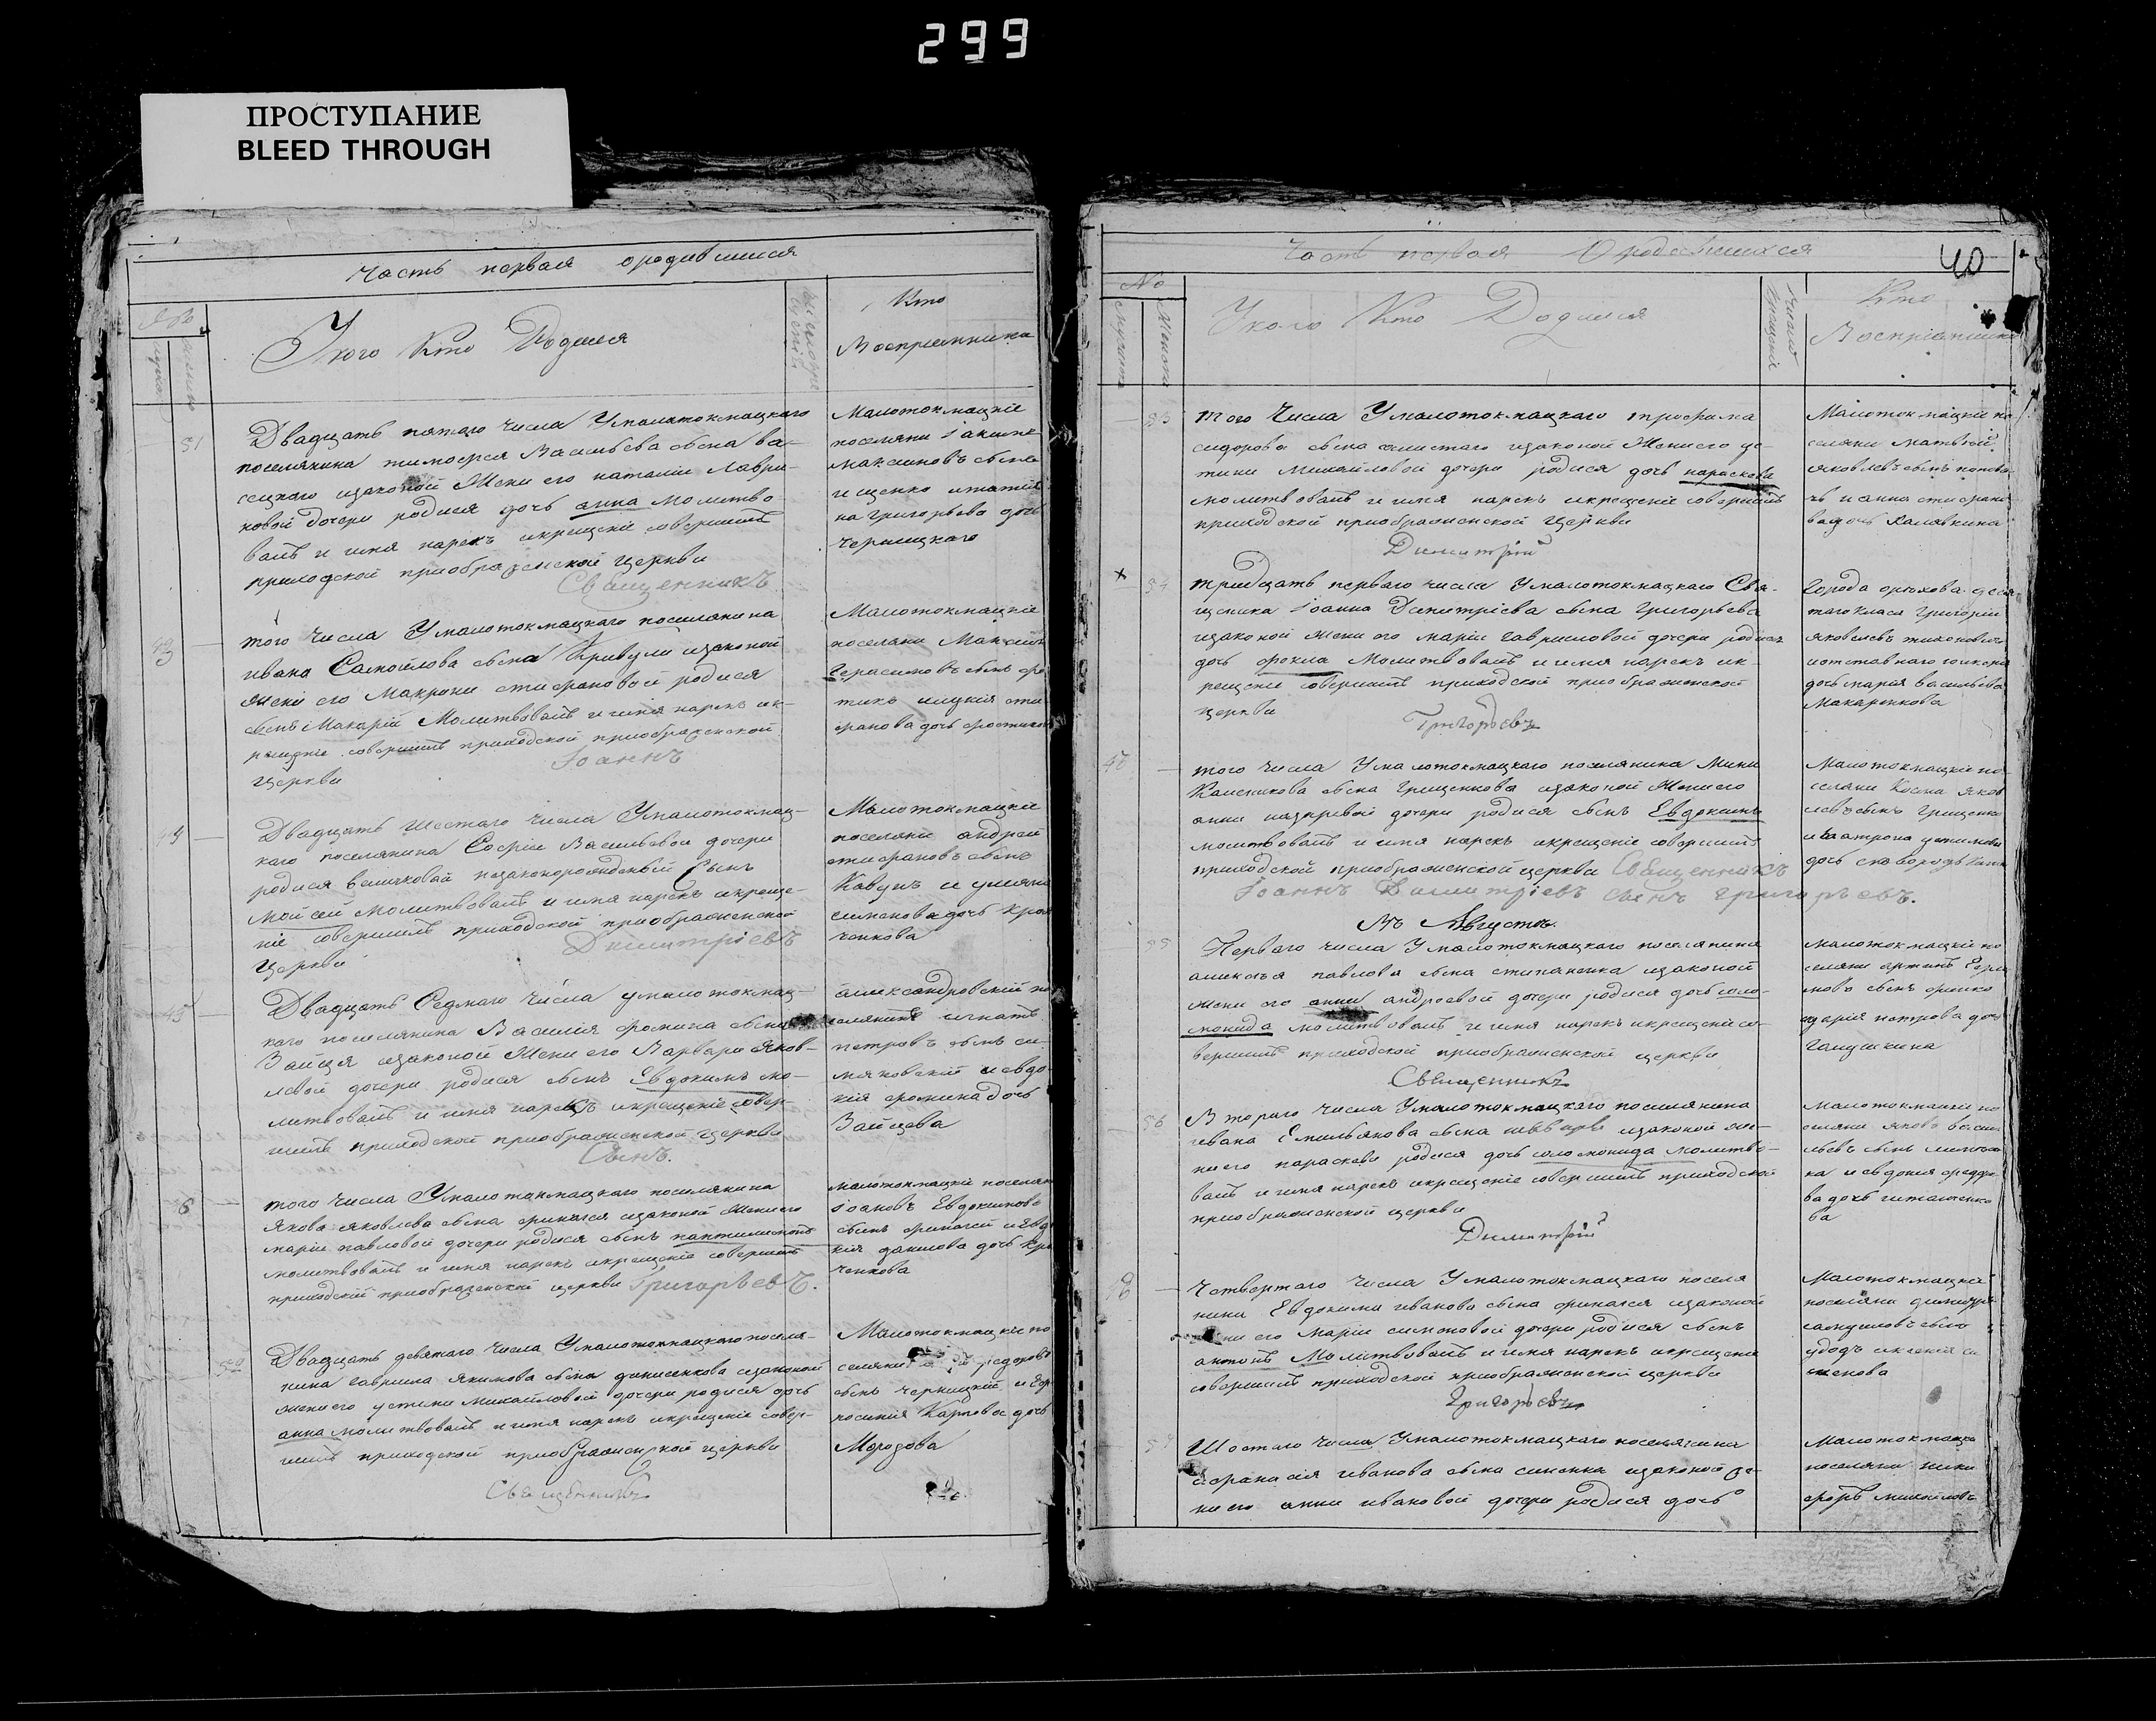 299
ПРОСТУПАНИЕ
BLEED THROUGH
Часть первая о родившихся
У кого Кто Родился
Кто
Восприемники
51
Двадцать пятого числа У малотокмацкаго
поселянина тимофея Васильева сына ва-
сецкаго изаконой Жени его наталіи Лаври-
новой дочери родися дочь анна молитво
валъ и имя нарекъ икрещеніе совершилъ
приходской приображенской церкви
Священникъ
Малотокмацкіе
поселяни
максимовъ сынъ
на григорьева дочь
Черницкаго
43
того Числа У малотокмацкаго поселянина
ивана Самойлова сына Кривули изаконой
жени его Макрони стифановой родися
сынъ Макарій Молитвовалъ и имя нарекъ ик-
рещеніе совершилъ приходской приображенской
Церкви
Іоаннъ
Малотокмацкіе
поселяни Максимъ
Герасимовъ сынъ фо
фанова дочь
44
Двадцать Шестаго числа У малотокмац-
каго поселянина Софіи Васильевои дочери
родися величковай незаконорожденый Сынъ
Мойсей Молитвовалъ и имя нарекъ икреще-
ніе совершилъ приходской приображенской
Церкви
Димитріевъ
Малотокмацкіе
поселяни андрей
стифановъ сынъ
Кавунъ и уляна
сименова дочь Крав
ченкова
45
Двадцать Седмаго Числа у малотокмац-
каго поселянина Василія фомина сына
Зайця изаконой Жени его Варвари яков-
левой дочери родися сынъ Евдокимъ мо-
литвовалъ и имя нарекъ икрещеніе совер-
шилъ приходской приображенской Церкви
Сынъ.
александровскій по
селянинъ игнатъ
петровъ сынъ си-
мяковскій и евдо-
кія фомина дочь
Зайцева
6
того Числа У малотокмацкаго поселянина
Якова яковлева сына изаконой Жени его
маріи павловой дочери родися сынъ пантилимонъ
молитвовалъ и имя нарекъ икрещеніе совершилъ
приходской приображенской церкви Григорьевъ.
малотокмацкіе поселян
Іоановъ Евдокимовъ
сынъ и Евдо
кія данилова дочь Кра
ченкова
52
Двадцать девятаго Числа У малотокмацкаго поселя-
нина Гаврила якимова сына денисенкова изаконой
жени его устини михайловой дочери родися дочь
анна молитвовалъ и имя нарекъ икрещеніе совер-
шилъ приходской приображенской церкви
Священникъ
Малотокмацкіе по
селяни федоровъ
сынъ черницкій и Ефр
росинія Карпова дочь
Морозова
Часть первая О родившихся
40
№
У кого Кто Родился
Число
Крещенія
Кто
Воспріемники
53
того Числа У малотокмацкаго трофима
сидорова сына изаконой Жени его ус-
тини михайловой дочери родися дочь параскева
молитвовалъ и имя нарекъ икрещеніе совершилъ
приходской приображенской Церкви
Димитрій
Малотокмацкіе по
селяни матвей
яковлевъ сынъ попов
ъ и анна стифано
ва дочь Халявкина
54
тридцать перваго числа У малотокмацкаго Свя-
щеника Іоанна Димитріева сына Григорьева
изаконой жени его маріи гавриловой дочери родися
дочь фекла Молитвовалъ и имя нарекъ ик-
рещеніе совершилъ приходской приображенской
церкви
Григорьевъ
Города орехова деся
таго класа Григорій
яковлевъ тихоновичъ
иотставнаго
дочь марія васильева
Макаренкова
47
того числа У малотокмацкаго поселянина Мини
Калиникова сына Грищенкова изаконой Жени его
анни назаревой дочери родися сынъ Евдокимъ
молитвовалъ и имя нарекъ икрещеніе совершилъ
приходской приображенской церкви Священникъ
Іоаннъ Димитріевъ сынъ Григорьевъ.
Малотокмацкіе по
селяни Косма яков
левъ сынъ Грищенко
дочь
Въ Августе.
55
Перваго числа У малотокмацкаго поселянина
алексея павлова сына степаненка изаконой
жени его анни андреевой дочери родися дочь соло-
монида молитвовалъ и имя нарекъ икрещеніе со-
вершилъ приходской приображенской церкви
Священникъ
малотокмацкіе по
селяни артимъ
новъ сынъ
марія петрова дочь
Галушкина
56
Втораго Числа У малотокмацкаго поселянина
ивана Емильянова сына изаконой же-
ни его параскеви родися дочь соломонида молитво-
валъ и имя нарекъ икрещеніе совершилъ приходской
приображенской церкви
Димитрій
малотокмацкіе по
селяни яковъ васи
льевъ сынъ
ка и евдокія федоро
ва дочь
ва
48
Четвертаго Числа У малотокмацкаго поселя
нина Евдокима иванова сына изаконой
жени его маріи симоновой дочери родися сынъ
антонъ Молитвовалъ и имя нарекъ икрещеніе
совершилъ приходской приображенской церкви
Григорьевъ
Малотокмацкіе
поселяни димитри
самуиловъ сынъ
удодъ
сименова
57
Шостаго Числа У малотокмацкаго поселянина
афанасія иванова сына синенка изаконой же-
ни его анни ивановой дочери родися дочь
Малотокмацкіе
поселяни ники
форъ михайловъ